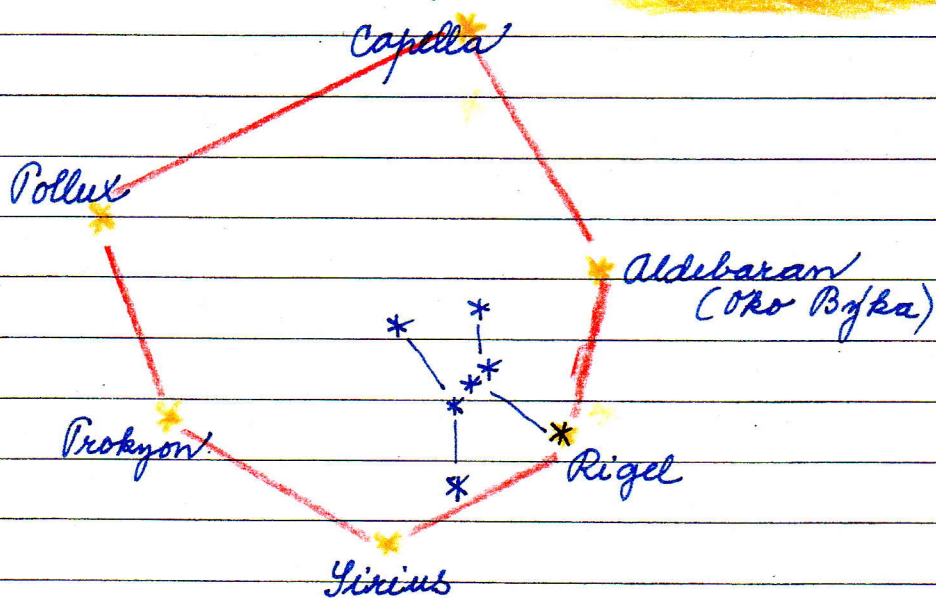 Capella
Pollux
Aldebaran
(Oko Býka)
Prokyon
Rigel
Sirius